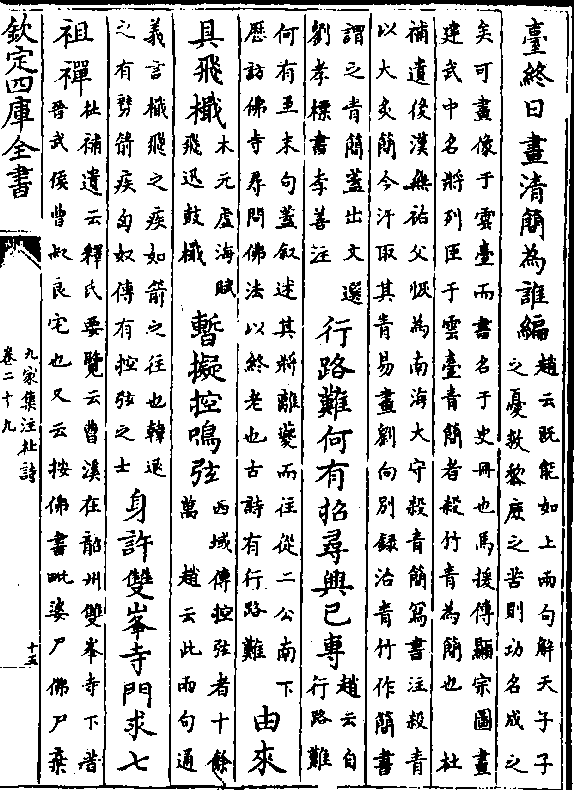 臺終日畫清簡為誰編
趙云既能如上兩句解天子子
之憂救黎庶之苦則功名成之
矣可畫像于雲臺而書名于史冊也馬援傳顯宗圖畫
建武中名將列臣于雲臺青簡者殺竹青為簡也 杜
補遺後漢無祐父恢為南海大守殺青簡寫書注殺青
以大炙簡令汗取其青易畫劉向別錄治青竹作簡書
謂之青簡蓋出文選
劉孝標書李善注
行路難何有招尋興已專
趙云自
行路難
何有至末句蓋叙述其將離夔而往從二公南下
歷訪佛寺尋問佛法以終老也古詩有行路難
由來
具飛檝
木元虛海賦
飛迅鼓檝
暫擬控鳴弦
西域傳控弦者十餘
萬 趙云此兩句通
義言檝飛之疾如箭之往也韓退
之有剪箭疾匈奴傳有控弦之士
身許雙峯寺門求七
祖禪
杜補遺云釋氏要覽云曹溪在韶州雙峯寺下昔
晉武侯曹叔良宅也又云按佛書毗婆尸佛尸棄
欽定四庫全書
九家集注杜詩
卷二十九
十五